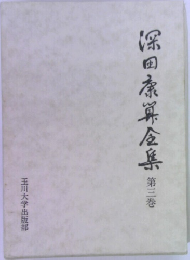 深田康算全集
第三巻
玉川大学出版部